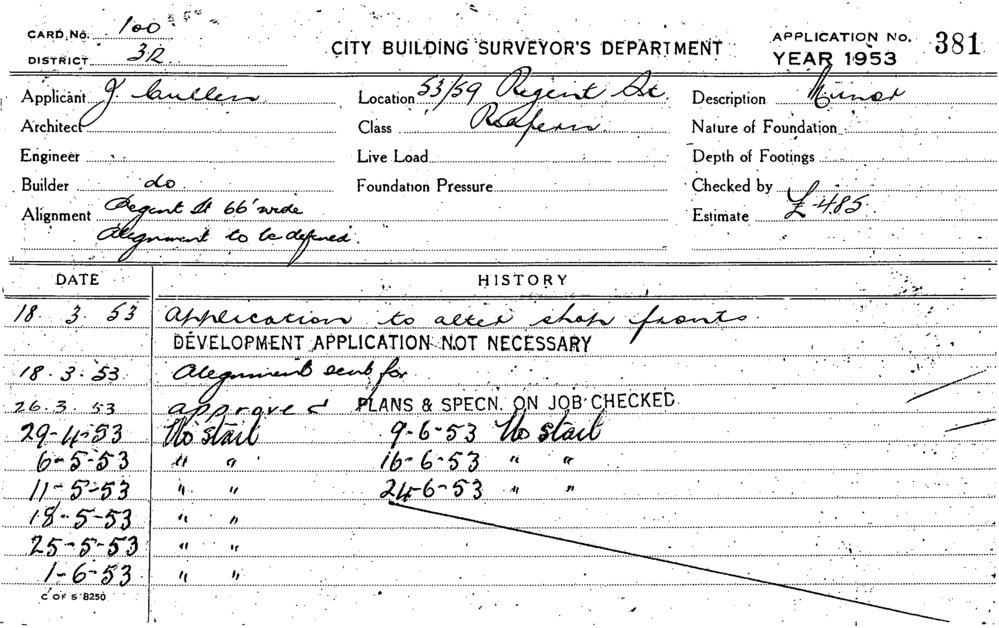 CARD. No. 100
DISTRICT 3R
CITY BUILDING SURVEYOR'S DEPARTMENT
APPLICATION No. 381
YEAR 1953
Applicant J. Cullen Location 53/59 Regent St. Description Minor
Architect Class Redfern Nature of Foundation
Engineer Live Load Depth of Footings
Builder do Foundation Pressure Checked by
Alignment Regent St 66' wide Estimate £485
Alignment to be defined.
DATE HISTORY
18. 3. 53 Application to alter shop fronts.
DEVELOPMENT APPLICATION NOT NECESSARY
18.3.53. Alignment sent for
26.3.53 approved PLANS & SPECN. ON JOB CHECKED
29-4-53 No start 9-6-53 No start
6-5-53 " " 16-6-53 " "
11-5-53 " " 24-6-53 " "
18-5-53 " "
25-5-53 " "
1-6-53 " "
C OF S 8250